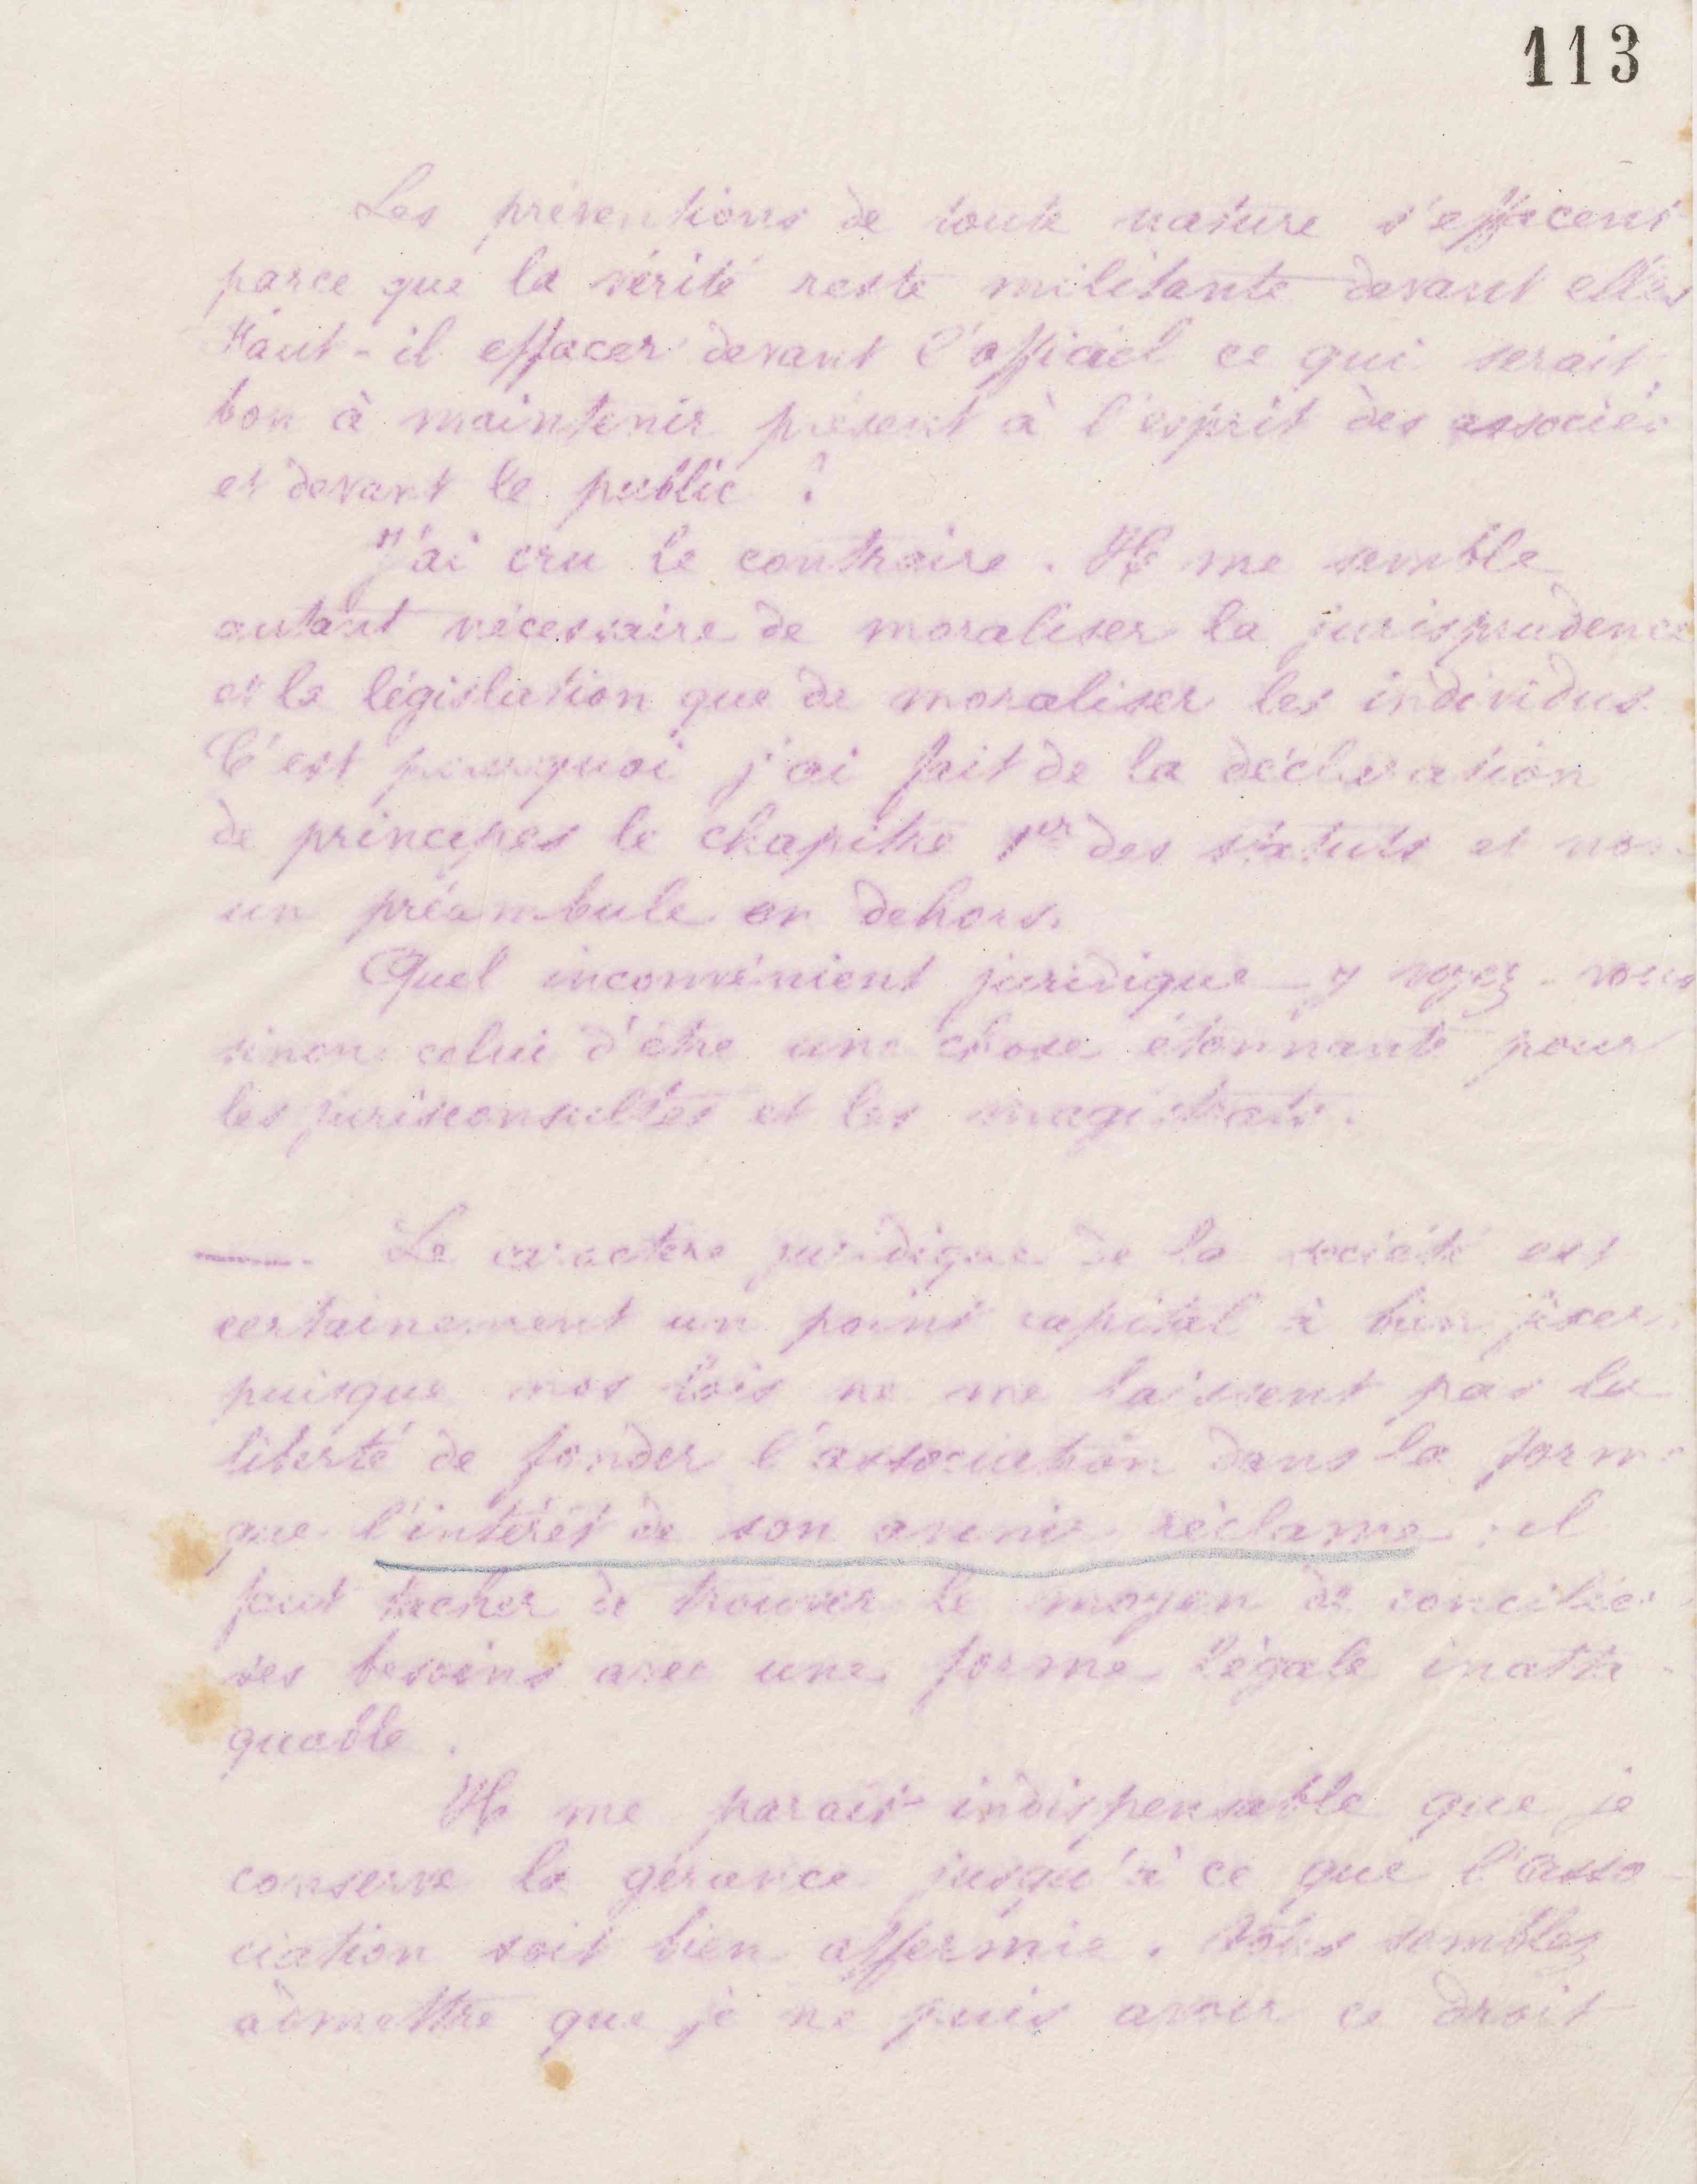 113
Les préventions de toute nature s'effacent
parce que la vérité reste militante devant elles
Faut-il effacer devant l'officiel ce qui serait
bon à maintenir présent à l'esprit des associés
et devant le public ?
J'ai cru le contraire. Il me semble
autant nécessaire de moraliser la jurisprudence
et la législation que de moraliser les individus.
C'est pourquoi j'ai fait de la déclaration
de principes le chapitre 1er des statuts et non
un préambule en dehors.
Quel inconvénient juridique y voyez-vous
sinon celui d'être une chose étonnante pour
les jurisconsultes et les magistrats.
—— Le caractère juridique de la société est
certainement un point capital à bien fixer,
puisque nos lois ne me laissent pas la
liberté de fonder l'association dans la forme
que l'intérêt de son avenir réclame ; il
faut tacher de trouver le moyen de concilier
ses besoins avec une forme légale inatta-
quable.
Il me parait indispensable que je
conserve la gérance jusqu'à ce que l'asso-
ciation soit bien affermie. Vous semblez
admettre que je ne puis avoir ce droit